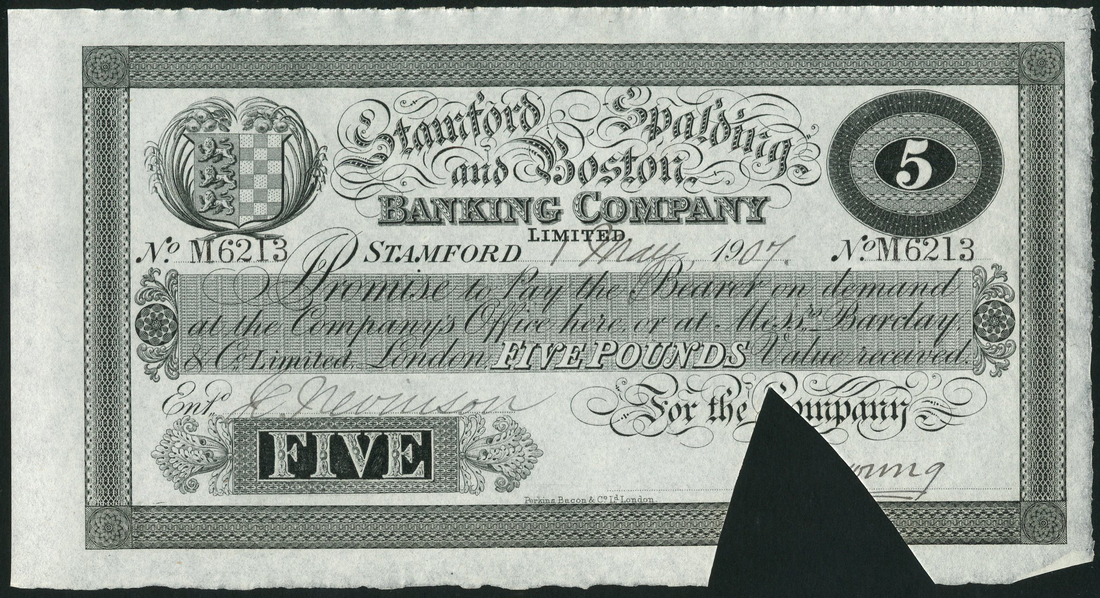 Stamford Spalding
and Boston
BANKING COMPANY
LIMITED
5
No M6213
STAMFORD 1 May 1907.
No M6213
I Promise to Pay the Bearer on demand
at the Company's Office here, or at Messrs. Barclay,
& Co. Limited, London, FIVE POUNDS Value received.
Entd.
For the Company
FIVE
young
Perkins, Bacon & Co. Ld. London.